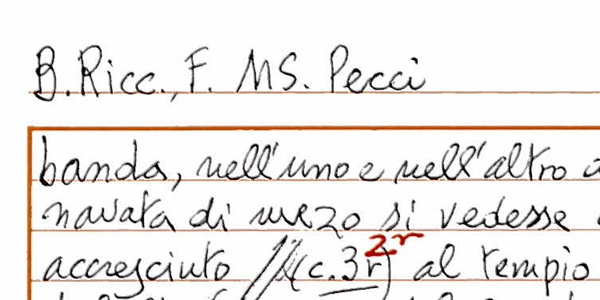 B. Ricc., F. MS. Pecci
banda, nell'uno e nell'altro
navata di mezzo si vedesse
2r
accresciuto // (c. 3r) al tempio